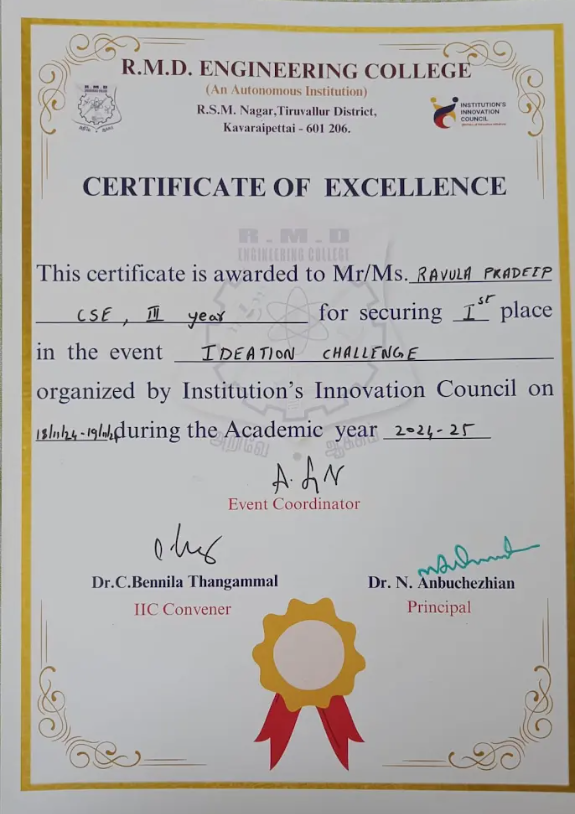 R.M.D. ENGINEERING COLLEGE
(An Autonomous Institution)
R.S.M. Nagar,Tiruvallur District,
Kavaraipettai - 601 206.
INSTITUTION'S
INNOVATION
COUNCIL
CERTIFICATE OF EXCELLENCE
R.M.D
ENGINEERING COLLEGE
This certificate is awarded to Mr/Ms. RAVULA PRADEEP
CSE, III year for securing Ist place
in the event IDEATION CHALLENGE
organized by Institution's Innovation Council on
18/11/24-19/11/24 during the Academic year 2024-25
அறிவே ஆக்கம்
Event Coordinator
Dr.C.Bennila Thangammal
Dr. N. Anbuchezhian
IIC Convener
Principal